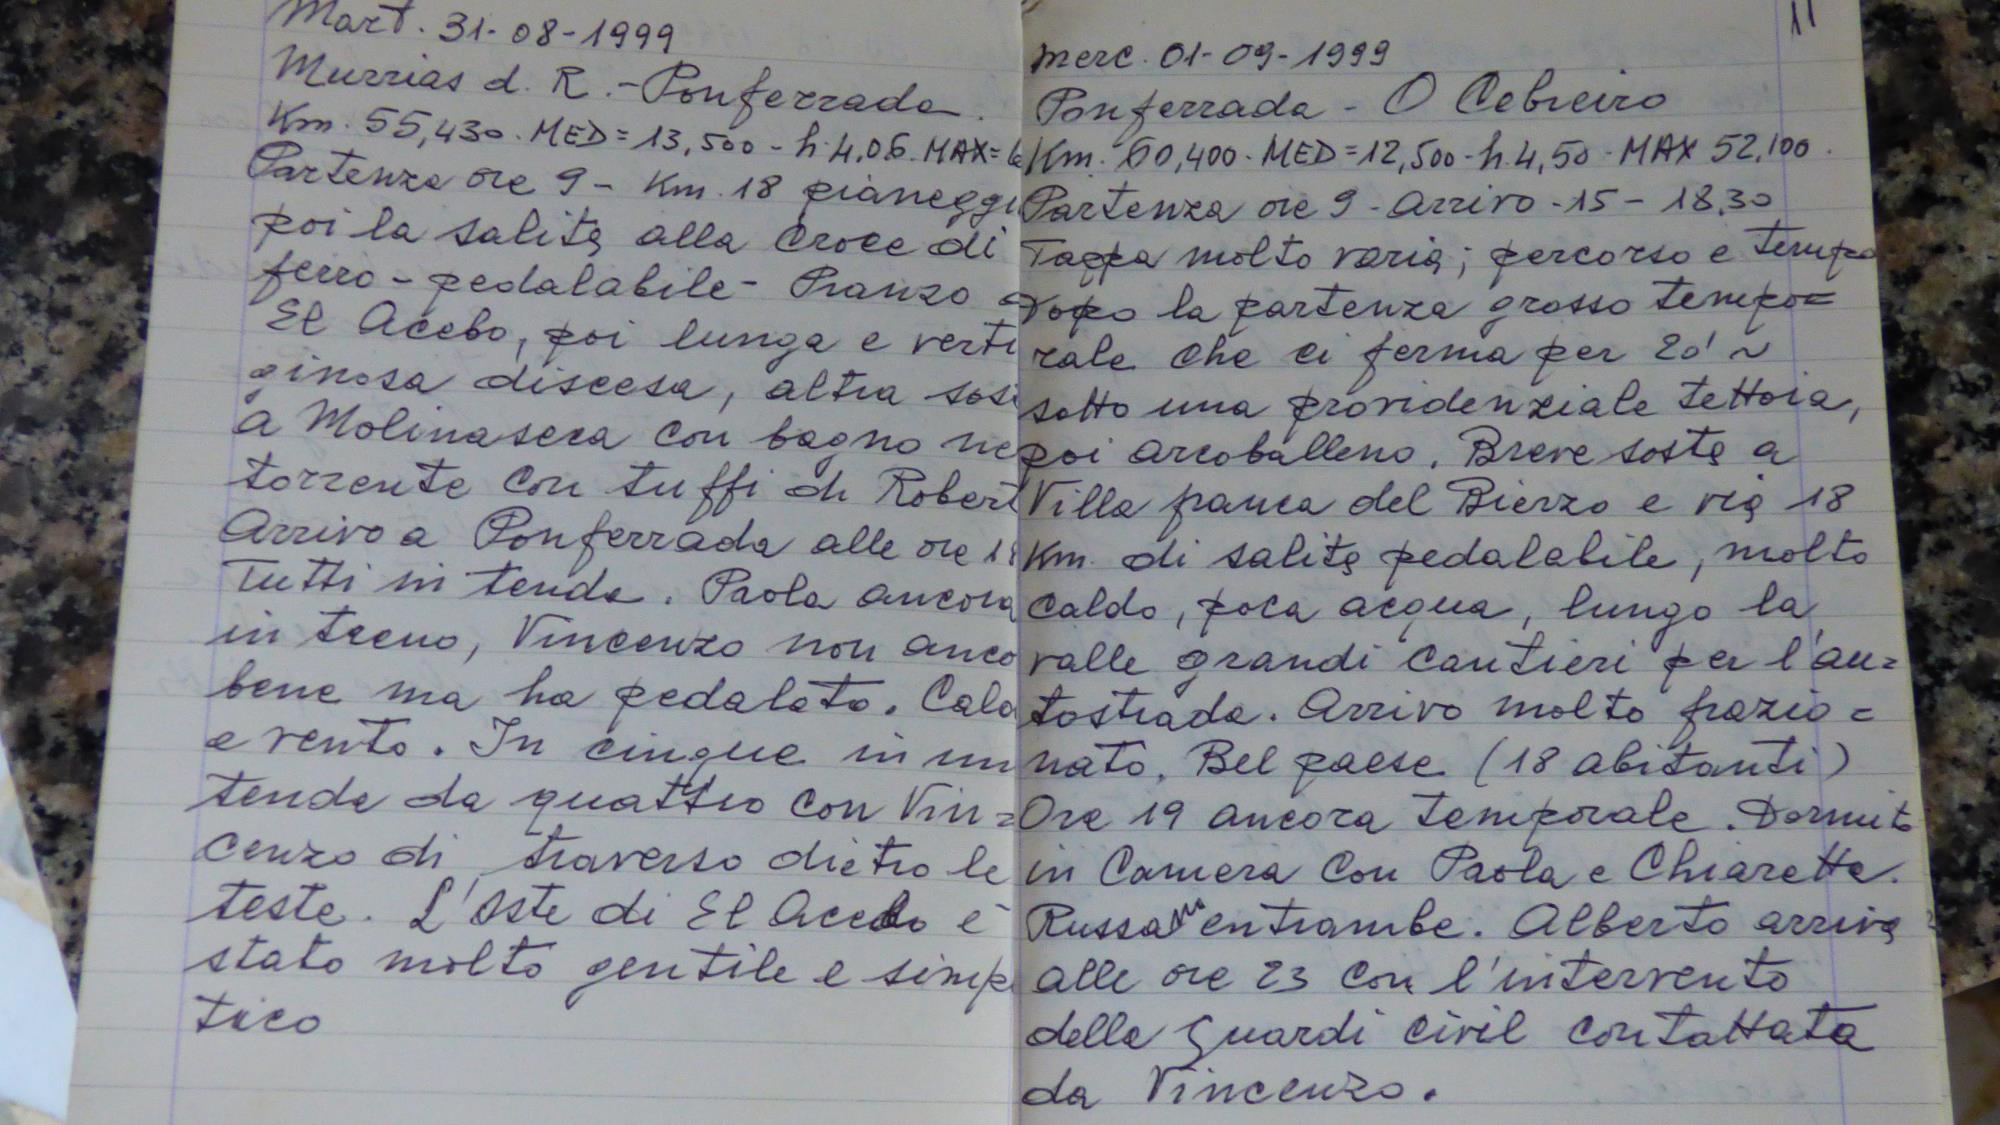 Mart. 31-08-1999
Murrias d. R. - Ponferrada.
Km. 55,430. MED=13,500 - h. 4,06. MAX=6
Partenza ore 9 - Km. 18 pianeggi
poi la salita alla Croce di
ferro - pedalabile - Pranzo a
El Acebo, poi lunga e verti
ginosa discesa, altra sos
a Molinaseca con bagno ne
torrente con tuffi di Robert
Arrivo a Ponferrada alle ore 18
Tutti in tenda. Paola ancora
in treno, Vincenzo non anco
bene ma ha pedalato. Caldo
e vento. In cinque in un
tenda da quattro con Vin=
cenzo di traverso dietro le
teste. L'oste di El Acebo è
stato molto gentile e simp
tico
11
Merc. 01-09-1999
Ponferrada - O Cebreiro
Km. 60,400. MED=12,500 - h. 4,50 - MAX 52,100.
Partenza ore 9 - Arrivo - 15 - 18.30
Tappa molto varia; percorso e tempo
Dopo la partenza grosso tempo=
rale che ci ferma per 20' ~
sotto una providenziale tettoia,
poi arcoballeno. Breve sosta a
Villa franca del Bierzo e via 18
Km. di salita pedalabile, molto
caldo, poca acqua, lungo la
valle grandi cantieri per l'au=
tostrada. Arrivo molto frazio=
nato. Bel paese (18 abitanti)
Ore 19 ancora temporale. Dormito
in Camera con Paola e Chiaretta.
Russano entrambe. Alberto arriva
alle ore 23 con l'intervento
della Guardi civil contattata
da Vincenzo.